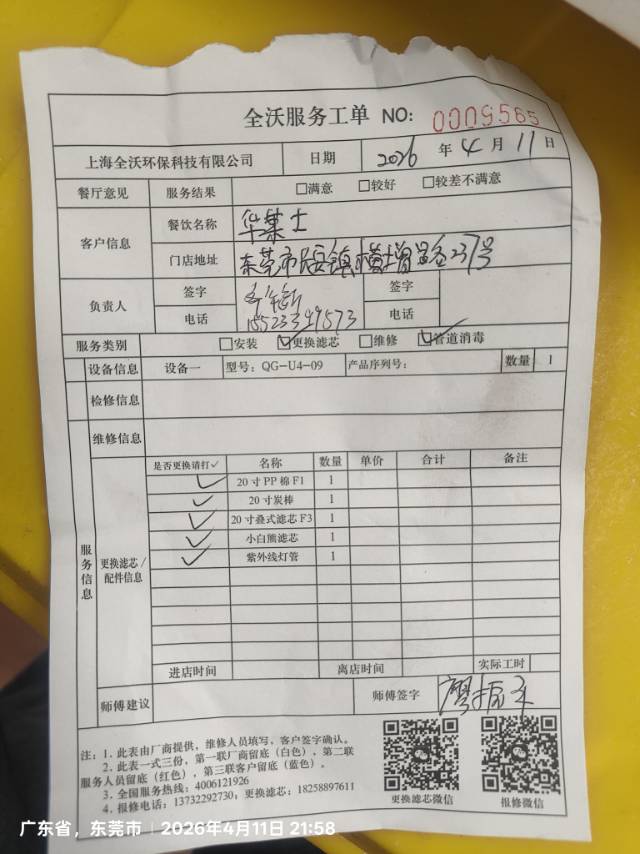 全沃服务工单 NO: 0009565
上海全沃环保科技有限公司 日期 2026 年 4 月 11 日
餐厅意见 服务结果 □满意 □较好 □较差不满意
客户信息 餐饮名称 华莱士
门店地址 东莞市 镇横增 237号
负责人 签字 签字
电话 15523349573 电话
服务类别 □安装 ☑更换滤芯 □维修 ☑管道消毒
设备信息 设备一 型号: QG-U4-09 产品序列号: 数量 1
检修信息
维修信息
服务信息
更换滤芯/配件信息
是否更换请打✓ 名称 数量 单价 合计 备注
✓ 20寸PP棉F1 1
✓ 20寸炭棒 1
✓ 20寸叠式滤芯F3 1
✓ 小白熊滤芯 1
✓ 紫外线灯管 1
进店时间 离店时间 实际工时
师傅建议 师傅签字 廖振
注: 1. 此表由厂商提供, 维修人员填写, 客户签字确认。
2. 此表一式三份, 第一联厂商留底(白色), 第二联
服务人员留底(红色), 第三联客户留底(蓝色)。
3. 全国服务热线: 4006121926
4. 报修电话: 13732292730; 更换滤芯: 18258897611
更换滤芯微信 报修微信
广东省, 东莞市 | 2026年4月11日 21:58